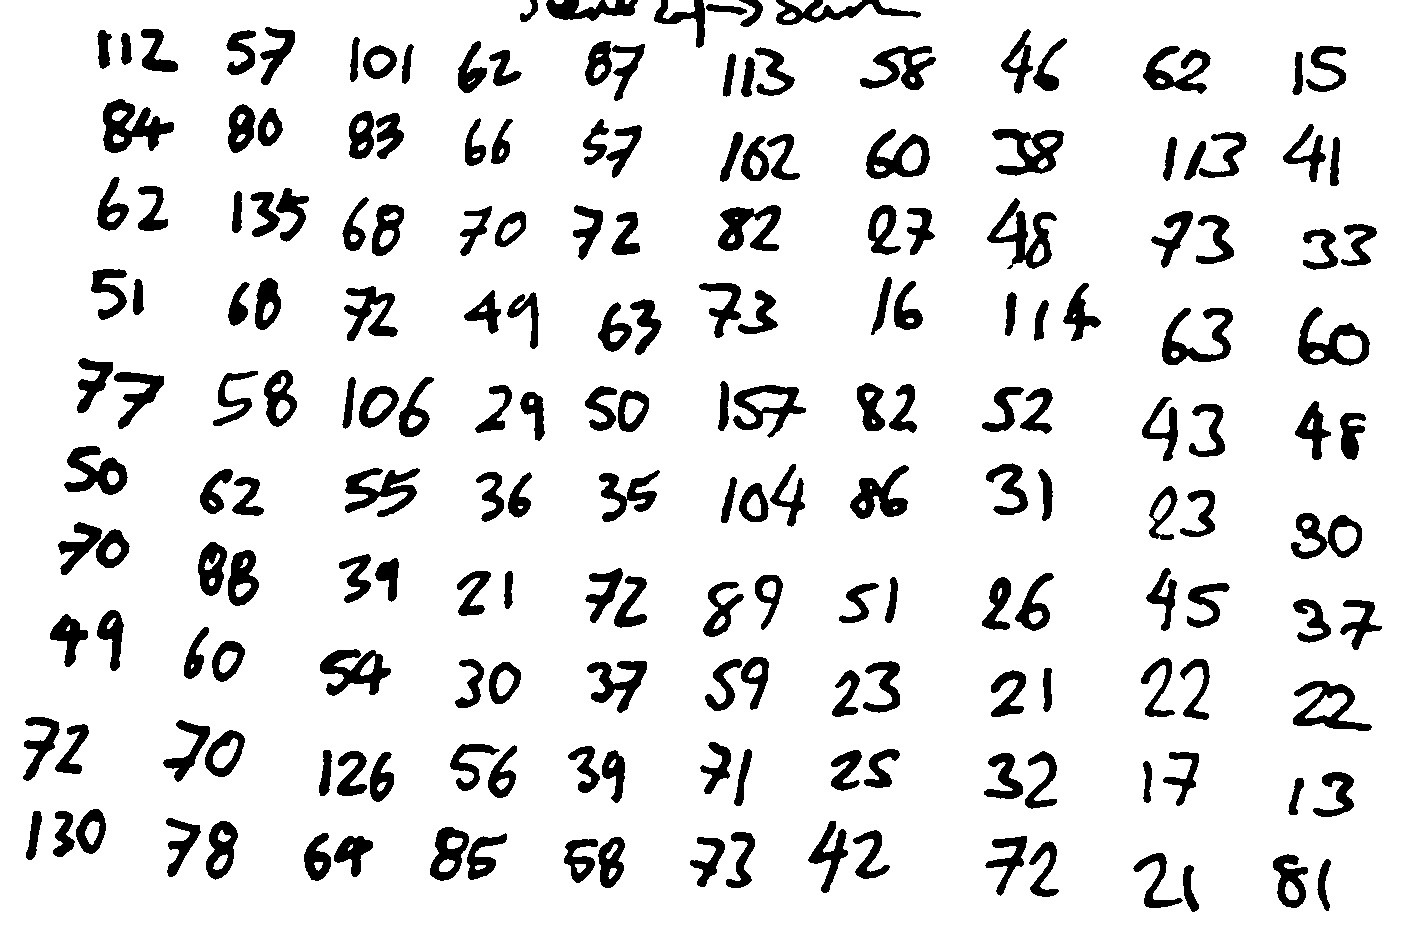 112 57 101 62 87 113 58 46 62 15
84 80 83 66 57 162 60 38 113 41
62 135 68 70 72 82 27 48 73 33
51 68 72 49 63 73 16 114 63 60
77 58 106 29 50 157 82 52 43 48
50 62 55 36 35 104 86 31 23 30
70 88 39 21 72 89 51 26 45 37
49 60 54 30 37 59 23 21 22 22
72 70 126 56 39 71 25 32 17 13
130 78 69 85 58 73 42 72 21 81